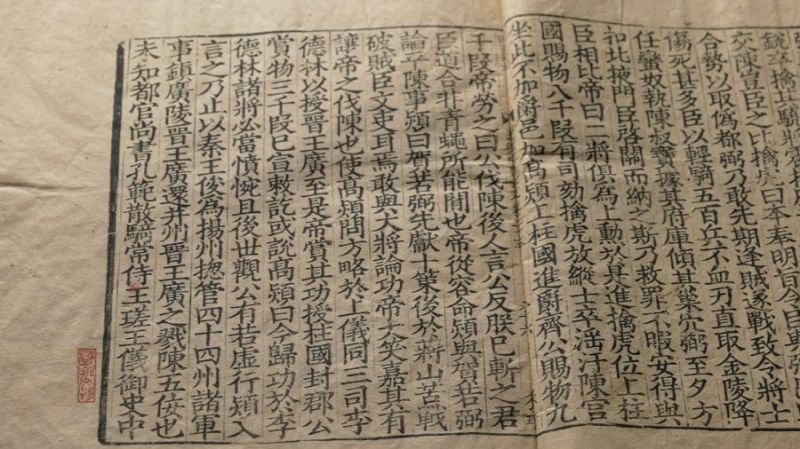 銳卒擒其驍將震揚
交陳豈臣之比擒虎曰本奉明旨令臣與弼
合勢以取偽都弼乃敢先期逢賊遂戰致令將士
傷死甚多臣以輕騎五百兵不血刃直取金陵降
任蠻奴執陳叔寶據其府庫傾其巢穴弼至夕方
扣北掖門臣啓關而納之斯乃救罪不暇安得與
臣相比帝曰二將俱為上勳於是進擒虎位上柱
國賜物八千段有司劾擒虎放縱士卒淫汙陳宮
坐此不加爵邑加高熲上柱國進爵齊公賜物九
千段帝勞之曰公伐陳後人言公反朕已斬之君
臣道合非青蠅所能間也帝從容命熲與賀若弼
論平陳事熲曰賀若弼先獻十策後於蔣山苦戰
破賊臣文吏耳焉敢與大將論功帝大笑嘉其有
讓帝之伐陳也使高熲問方略於上儀同三司李
德林以授晉王廣至是帝賞其功授柱國封郡公
賞物三千段已宣敕訖或說高熲曰今歸功於李
德林諸將必當憤惋且後世觀公有若虛行熲入
言之乃止以秦王俊為揚州揔管四十四州諸軍
事鎮廣陵晉王廣還并州晉王廣之戮陳五佞也
未知都官尚書孔範散騎常侍王瑳王儀御史中